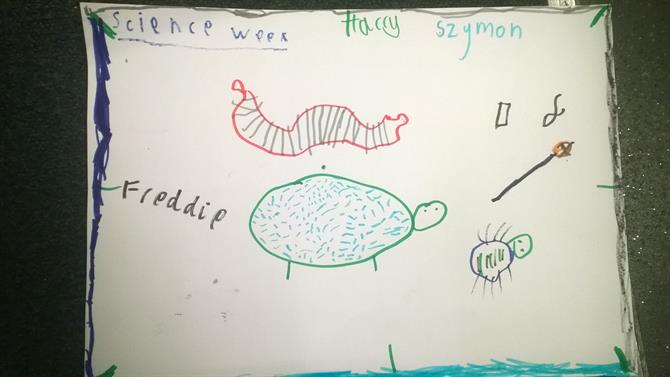 Science Week
Harry
Szymon
Freddie